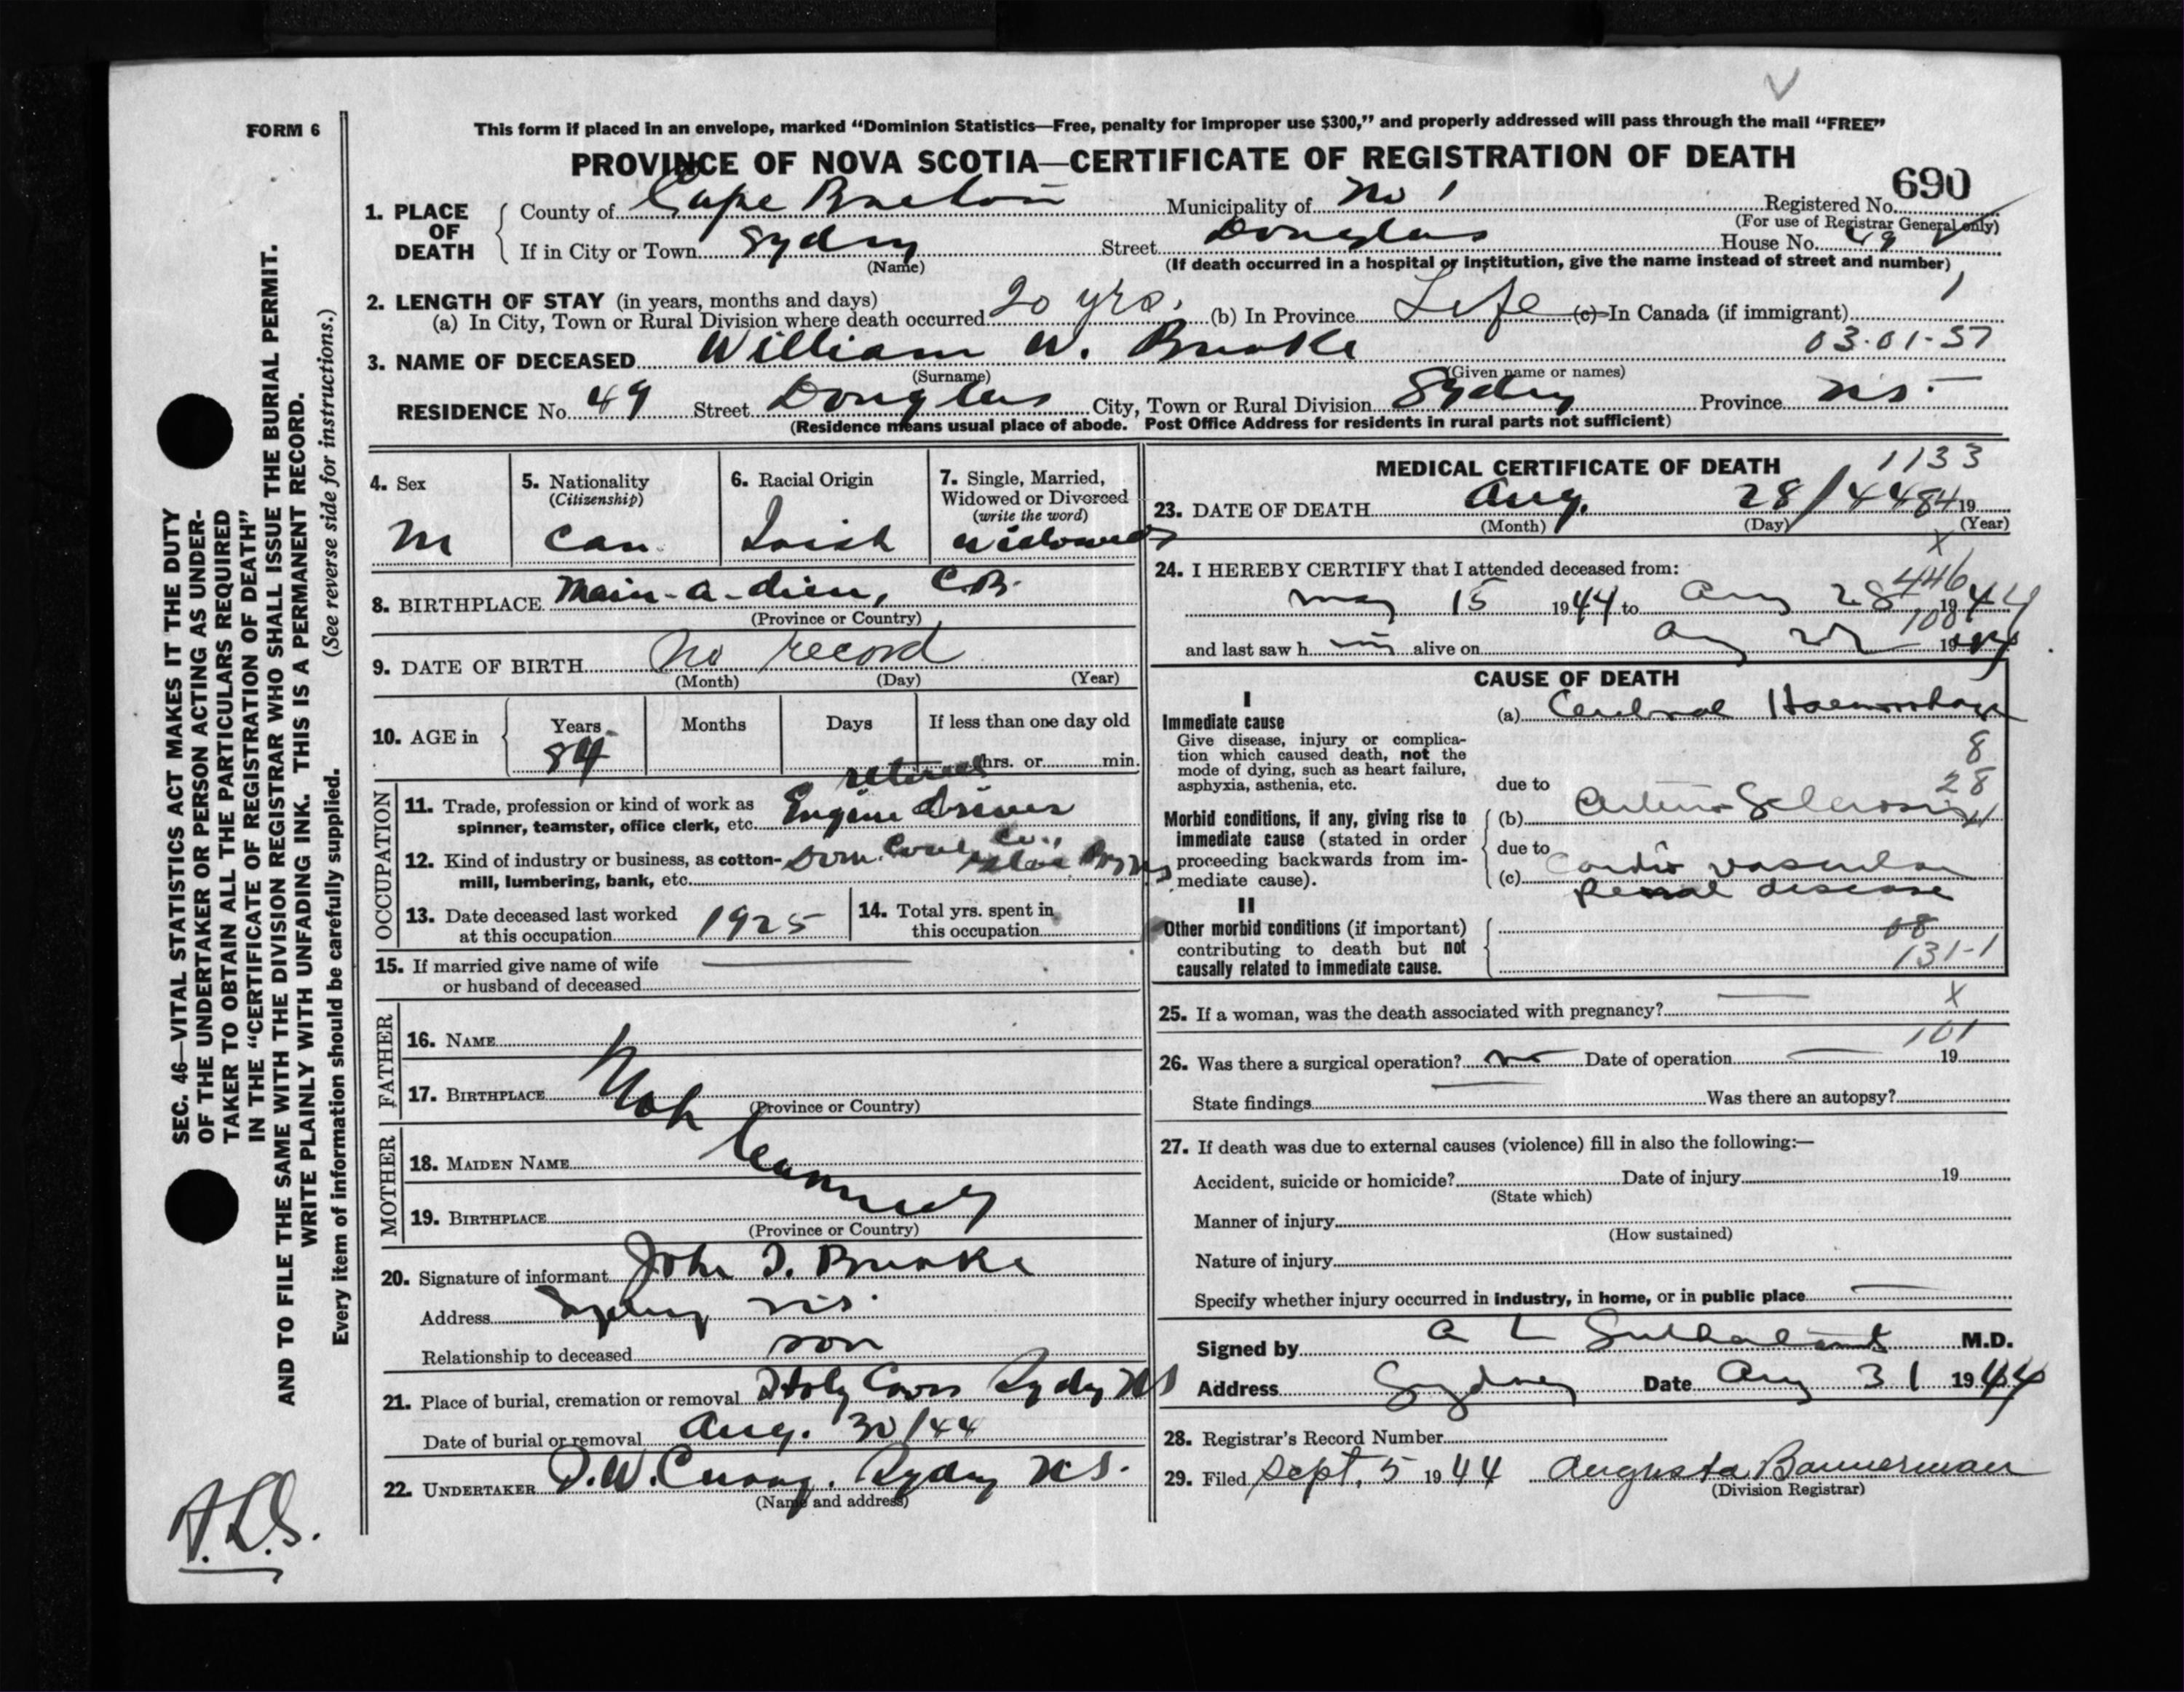 FORM 6
This form if placed in an envelope, marked “Dominion Statistics—Free, penalty for improper use $300,” and properly addressed will pass through the mail “FREE”
PROVINCE OF NOVA SCOTIA—CERTIFICATE OF REGISTRATION OF DEATH
690
1. PLACE OF DEATH County of Cape Breton Municipality of No 1 Registered No.
(For use of Registrar General only)
If in City or Town Sydney Street Douglas House No. 49
(Name) (If death occurred in a hospital or institution, give the name instead of street and number)
2. LENGTH OF STAY (in years, months and days) 1
(a) In City, Town or Rural Division where death occurred 20 yrs. (b) In Province Life (c) In Canada (if immigrant)
3. NAME OF DECEASED William W. Burke 03-01-57
(Surname) (Given name or names)
RESIDENCE No. 49 Street Douglas City, Town or Rural Division Sydney Province N.S.
(Residence means usual place of abode. Post Office Address for residents in rural parts not sufficient)
4. Sex
M
5. Nationality
(Citizenship)
Can
6. Racial Origin
Irish
7. Single, Married,
Widowed or Divorced
(write the word)
Widowed
8. BIRTHPLACE Main-a-dieu, C.B.
(Province or Country)
9. DATE OF BIRTH No record
(Month) (Day) (Year)
10. AGE in Years Months Days If less than one day old
84 hrs. or min.
OCCUPATION
retired
11. Trade, profession or kind of work as Engine driver
spinner, teamster, office clerk, etc.
12. Kind of industry or business, as cotton- Dom. Coal Co.,
mill, lumbering, bank, etc.
13. Date deceased last worked 1925
at this occupation
14. Total yrs. spent in
this occupation
15. If married give name of wife
or husband of deceased
FATHER
16. NAME
17. BIRTHPLACE
Not
(Province or Country)
MOTHER
18. MAIDEN NAME
19. BIRTHPLACE
(Province or Country)
20. Signature of informant John D. Burke
Address Sydney N.S.
Relationship to deceased son
21. Place of burial, cremation or removal Holy Cross Sydney NS
Date of burial or removal Aug. 30/44
22. UNDERTAKER Sydney N.S.
(Name and address)
MEDICAL CERTIFICATE OF DEATH 1133
23. DATE OF DEATH Aug. 28/44 84 19
(Month) (Day) (Year)
X
24. I HEREBY CERTIFY that I attended deceased from: 446
May 15 1944 to Aug 28 1944
100
and last saw h im alive on Aug 1944
CAUSE OF DEATH
I
Immediate cause
Give disease, injury or complica-
tion which caused death, not the
mode of dying, such as heart failure,
asphyxia, asthenia, etc.
(a) Cerebral Haemorrhage
8
28
due to
Morbid conditions, if any, giving rise to
immediate cause (stated in order
proceeding backwards from im-
mediate cause).
(b) Arterio Sclerosis
due to
(c) Cardio vascular
Renal disease
II
Other morbid conditions (if important)
contributing to death but not
causally related to immediate cause.
131-1
25. If a woman, was the death associated with pregnancy? X
101
26. Was there a surgical operation? no Date of operation 19
State findings Was there an autopsy?
27. If death was due to external causes (violence) fill in also the following:—
Accident, suicide or homicide? Date of injury 19
(State which)
Manner of injury
(How sustained)
Nature of injury
Specify whether injury occurred in industry, in home, or in public place
Signed by A L Sutherland M.D.
Address Sydney Date Aug 31 1944
28. Registrar's Record Number
29. Filed Sept. 5 1944 Augusta Bannerman
(Division Registrar)
SEC. 46—VITAL STATISTICS ACT MAKES IT THE DUTY
OF THE UNDERTAKER OR PERSON ACTING AS UNDER-
TAKER TO OBTAIN ALL THE PARTICULARS REQUIRED
IN THE “CERTIFICATE OF REGISTRATION OF DEATH”
AND TO FILE THE SAME WITH THE DIVISION REGISTRAR WHO SHALL ISSUE THE BURIAL PERMIT.
WRITE PLAINLY WITH UNFADING INK. THIS IS A PERMANENT RECORD.
Every item of information should be carefully supplied. (See reverse side for instructions.)
A.L.S.